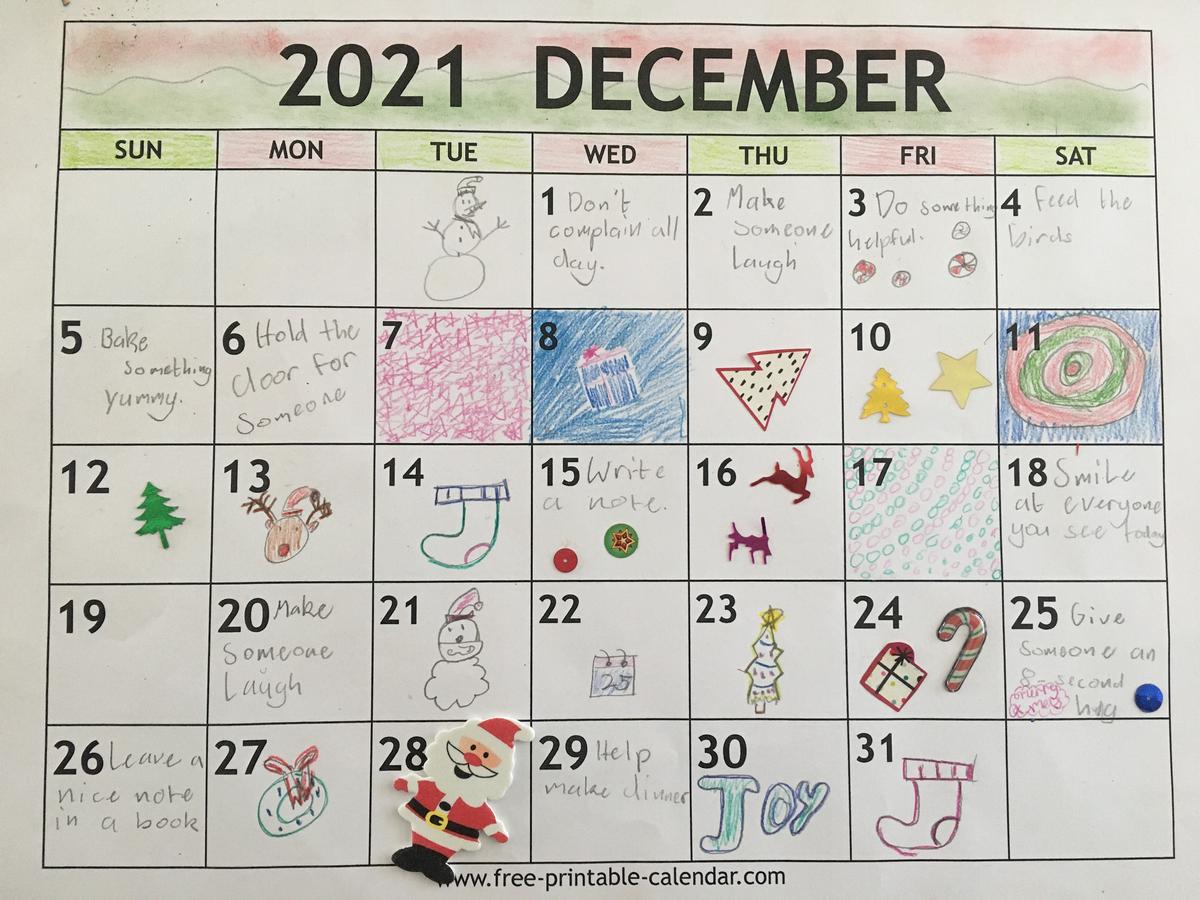 2021 DECEMBER
SUN MON TUE WED THU FRI SAT
1 Don't
complain all
day.
2 Make
someone
laugh
3 Do something
helpful.
4 Feed the
birds
5 Bake
something
yummy.
6 Hold the
door for
someone
7
8
9
10
11
12
13
14
15 Write
a note.
16
17
18 Smile
at everyone
you see today
19
20 Make
someone
Laugh
21
22
25
23
24
25 Give
someone an
8-second
hug
Merry
Xmas
26 Leave a
nice note
in a book
27
28
29 Help
make dinner
30
JOY
31
www.free-printable-calendar.com